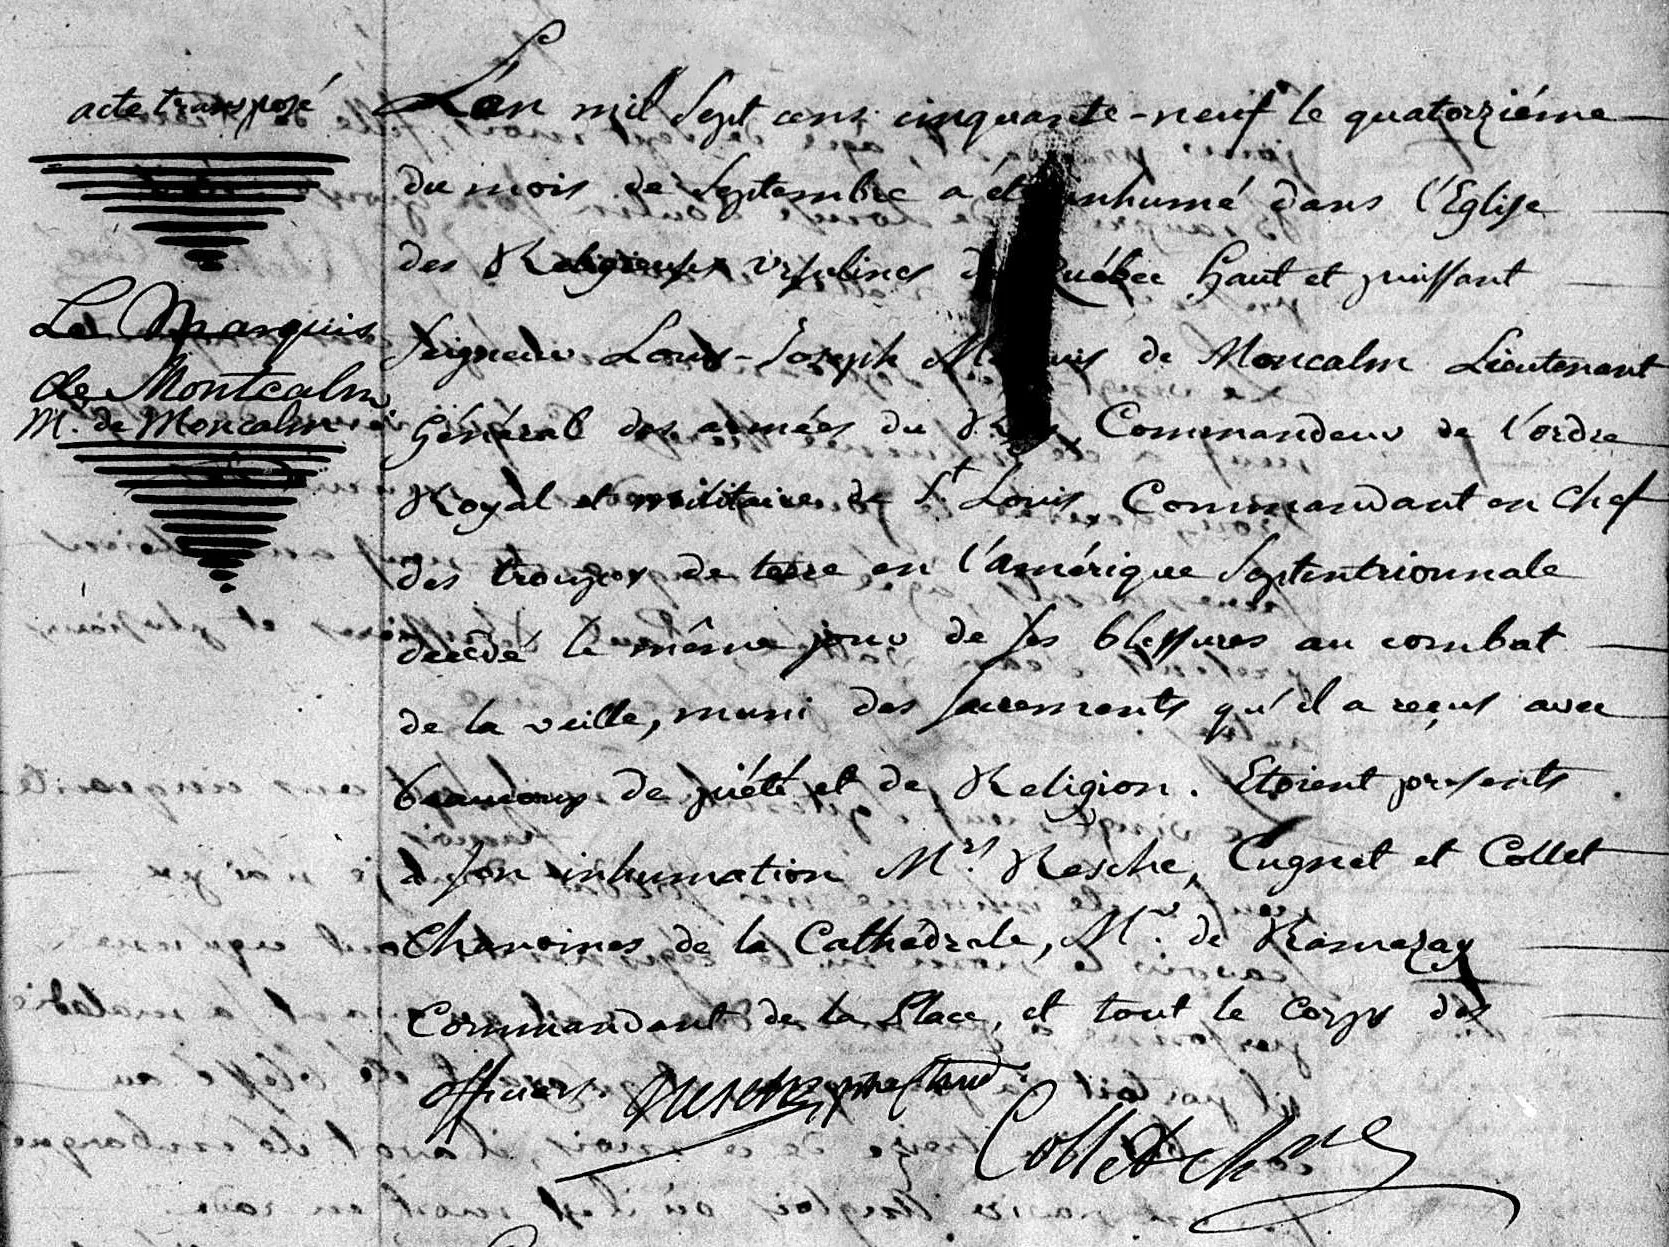 acte transposé
Le Marquis
de Montcalm
Mr. de Moncalm
L'an mil Sept cens cinquante-neuf le quatorziéme
du mois de Septembre a été inhumé dans l'Eglise
des Religieuses ursulines de Québec haut et puissant
Seigneur Louis-Joseph Marquis de Moncalm Lieutenant
Général des armées du Roy, Commandeur de l'ordre
Royal et militaire de St Louis, Commandant en chef
des troupes de terre en l'amérique Septentrionnale
decédé le même jour de ses blessures au combat
de la veille, muni des sacrements qu'il a reçus avec
beaucoup de piété et de Religion. Etoient présents
à son inhumation Mrs. Resche, Cugnet et Collet
Chanoines de la Cathédrale, Mr. de Ramezay
Commandant de la Place, et tout le Corps des
officiers. Resche ptre Chan
Collet chne